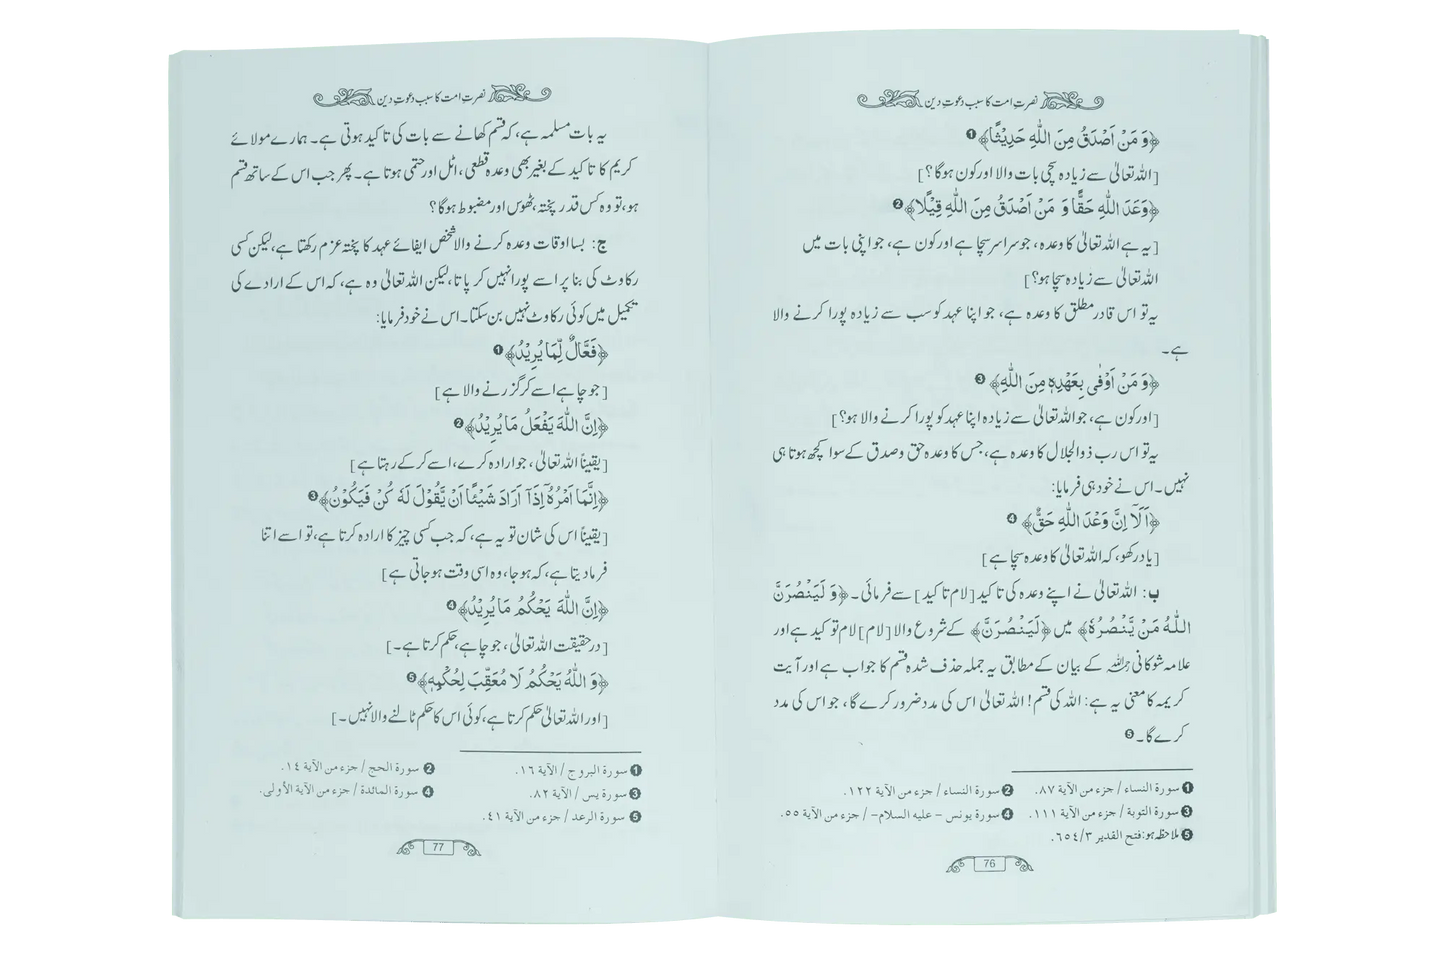 نصرتِ امت کا سبب دعوتِ دین
﴿وَ مَنْ اَصْدَقُ مِنَ اللّٰهِ حَدِیْثًا﴾❶
[اللہ تعالیٰ سے زیادہ سچی بات والا اور کون ہوگا؟]
﴿وَعْدَ اللّٰهِ حَقًّا وَ مَنْ اَصْدَقُ مِنَ اللّٰهِ قِیْلًا﴾❷
[یہ ہے اللہ تعالیٰ کا وعدہ، جو سراسر سچا ہے اور کون ہے، جو اپنی بات میں
اللہ تعالیٰ سے زیادہ سچا ہو؟]
یہ تو اس قادرِ مطلق کا وعدہ ہے، جو اپنا عہد کو سب سے زیادہ پورا کرنے والا
ہے۔
﴿وَ مَنْ اَوْفٰی بِعَهْدِهٖ مِنَ اللّٰهِ﴾❸
[اور کون ہے، جو اللہ تعالیٰ سے زیادہ اپنا عہد کو پورا کرنے والا ہو؟]
یہ تو اس رب ذوالجلال کا وعدہ ہے، جس کا وعدہ حق و صدق کے سوا کچھ ہوتا ہی
نہیں۔ اس نے خود ہی فرمایا:
﴿اَلَآ اِنَّ وَعْدَ اللّٰهِ حَقٌّ﴾❹
[یاد رکھو، کہ اللہ تعالیٰ کا وعدہ سچا ہے]
ب: اللہ تعالیٰ نے اپنے وعدہ کی تاکید [لام تاکید] سے فرمائی۔ ﴿وَ لَیَنْصُرَنَّ
اللّٰهُ مَنْ یَّنْصُرُهٗ﴾ میں ﴿لَیَنْصُرَنَّ﴾ کے شروع والا [لام] لام تو کید ہے اور
علامہ شوکانی رحمہ اللہ کے بیان کے مطابق یہ جملہ حذف شدہ قسم کا جواب ہے اور آیت
کریمہ کا معنی یہ ہے: اللہ کی قسم! اللہ تعالیٰ اس کی مدد ضرور کرے گا، جو اس کی مدد
کرے گا۔❺
❶ سورة النساء / جزء من الآية ٨٧. ❷ سورة النساء / جزء من الآية ١٢٢.
❸ سورة التوبة / جزء من الآية ١١١. ❹ سورة يونس – عليه السلام– / جزء من الآية ٥٥.
❺ ملاحظہ ہو: فتح القدير ٦٥٤/٣.
76
نصرتِ امت کا سبب دعوتِ دین
یہ بات مسلمہ ہے، کہ قسم کھانے سے بات کی تاکید ہوتی ہے۔ ہمارے مولائے
کریم کا تاکید کے بغیر بھی وعدہ قطعی، اٹل اور حتمی ہوتا ہے۔ پھر جب اس کے ساتھ قسم
ہو، تو وہ کس قدر پختہ، ٹھوس اور مضبوط ہوگا؟
ج: بسا اوقات وعدہ کرنے والا شخص ایفائے عہد کا پختہ عزم رکھتا ہے، لیکن کسی
رکاوٹ کی بنا پر اسے پورا نہیں کر پاتا، لیکن اللہ تعالیٰ وہ ہے، کہ اس کے ارادے کی
تکمیل میں کوئی رکاوٹ نہیں بن سکتا۔ اس نے خود فرمایا:
﴿فَعَّالٌ لِّمَا یُرِیْدُ﴾❶
[جو چاہے اسے کر گزرنے والا ہے]
﴿اِنَّ اللّٰهَ یَفْعَلُ مَا یُرِیْدُ﴾❷
[یقیناً اللہ تعالیٰ، جو ارادہ کرے، اسے کرکے رہتا ہے]
﴿اِنَّمَا اَمْرُهٗٓ اِذَآ اَرَادَ شَیْئًا اَنْ یَّقُوْلَ لَهٗ كُنْ فَیَكُوْنُ﴾❸
[یقیناً اس کی شان تو یہ ہے، کہ جب کسی چیز کا ارادہ کرتا ہے، تو اسے اتنا
فرما دیتا ہے، کہ ہو جا، وہ اسی وقت ہو جاتی ہے]
﴿اِنَّ اللّٰهَ یَحْكُمُ مَا یُرِیْدُ﴾❹
[درحقیقت اللہ تعالیٰ، جو چاہے، حکم کرتا ہے۔]
﴿وَ اللّٰهُ یَحْكُمُ لَا مُعَقِّبَ لِحُكْمِهٖ﴾❺
[اور اللہ تعالیٰ حکم کرتا ہے، کوئی اس کا حکم ٹالنے والا نہیں۔]
❶ سورة البروج / الآية ١٦. ❷ سورة الحج / جزء من الآية ١٤.
❸ سورة يس / الآية ٨٢. ❹ سورة المائدة / جزء من الآية الأولى.
❺ سورة الرعد / جزء من الآية ٤١.
77